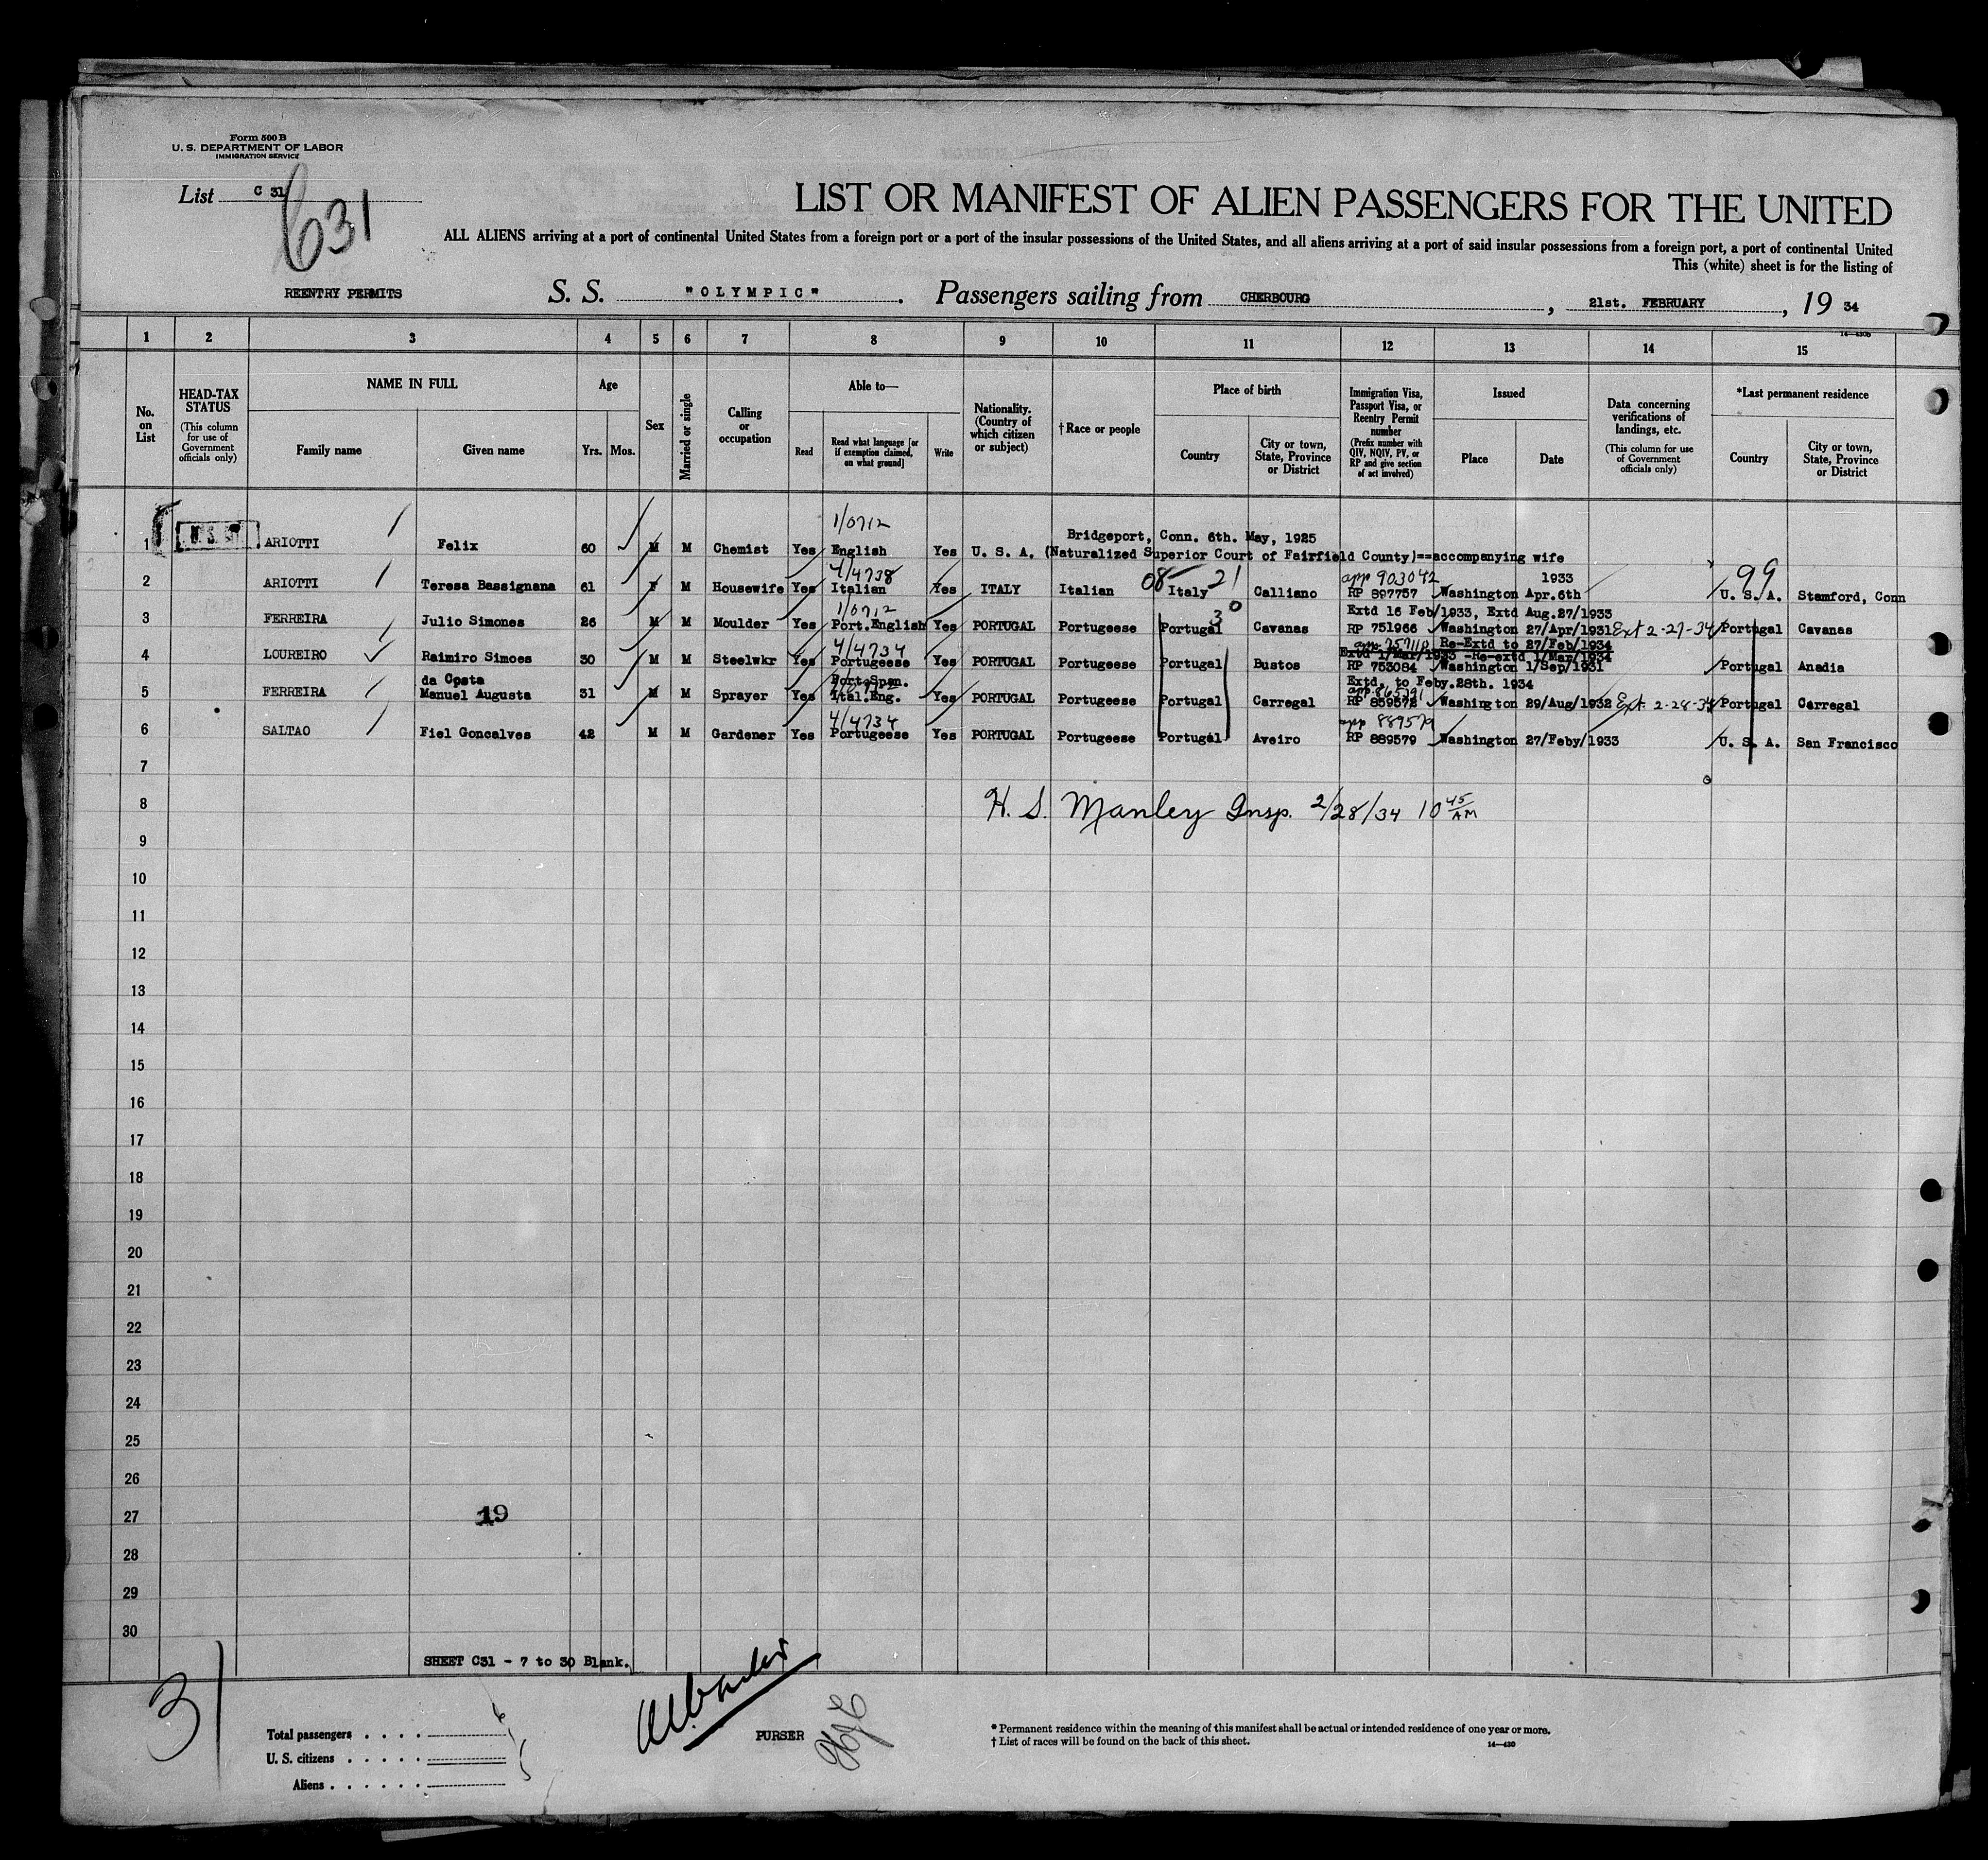 Form 500 B
U. S. DEPARTMENT OF LABOR
IMMIGRATION SERVICE
List C 31
C31
LIST OR MANIFEST OF ALIEN PASSENGERS FOR THE UNITED
ALL ALIENS arriving at a port of continental United States from a foreign port or a port of the insular possessions of the United States, and all aliens arriving at a port of said insular possessions from a foreign port, a port of continental United
This (white) sheet is for the listing of
REENTRY PERMITS
S. S. "OLYMPIC". Passengers sailing from CHERBOURG, 21st. FEBRUARY, 19 34
1 2 3 4 5 6 7 8 9 10 11 12 13 14 15
No. on List
HEAD-TAX STATUS (This column for use of Government officials only)
NAME IN FULL
Family name Given name
Age
Yrs. Mos.
Sex
Married or single
Calling or occupation
Able to—
Read
Read what language [or if exemption claimed, on what ground]
Write
Nationality. (Country of which citizen or subject)
†Race or people
Place of birth
Country
City or town, State, Province or District
Immigration Visa, Passport Visa, or Reentry Permit number (Prefix number with QIV, NQIV, PV, or RP and give section of act involved)
Issued
Place Date
Data concerning verifications of landings, etc. (This column for use of Government officials only)
*Last permanent residence
Country
City or town, State, Province or District
1/0712
Bridgeport, Conn. 6th. May, 1925
1 ARIOTTI Felix 60 M M Chemist Yes English Yes U. S. A. (Naturalized Superior Court of Fairfield County)==accompanying wife
4/4738 08 21 app 903042 1933 99
2 ARIOTTI Teresa Bassignana 61 F M Housewife Yes Italian Yes ITALY Italian Italy Calliano RP 897757 Washington Apr.6th U. S. A. Stamford, Conn
1/0712 30 Extd 16 Feb/1933, Extd Aug.27/1933
3 FERREIRA Julio Simones 26 M M Moulder Yes Port.English Yes PORTUGAL Portugeese Portugal Cavanas RP 751966 Washington 27/Apr/1931 Ext 2-27-34 Portugal Cavanas
Re-Extd to 27/Feb/1934
4/4734 Extd 1/Mar/1933 -Re-extd 1/Mar/1934
4 LOUREIRO Raimiro Simoes 30 M M Steelwkr Yes Portugeese Yes PORTUGAL Portugeese Portugal Bustos RP 753084 Washington 1/Sep/1931 Portugal Anadia
da Costa Port.Span. Extd. to Feby.28th. 1934
5 FERREIRA Manuel Augusta 31 M M Sprayer Yes Ital.Eng. Yes PORTUGAL Portugeese Portugal Carregal RP 859572 Washington 29/Aug/1932 Ext. 2-28-34 Portugal Carregal
4/4734 app 889579
6 SALTAO Fiel Goncalves 42 M M Gardener Yes Portugeese Yes PORTUGAL Portugeese Portugal Aveiro RP 889579 Washington 27/Feby/1933 U. S. A. San Francisco
7
8 H. S. Manley Insp. 2/28/34 10 45 AM
9
10
11
12
13
14
15
16
17
18
19
20
21
22
23
24
25
26
27 19
28
29
30
SHEET C31 - 7 to 30 Blank.
31
Total passengers
U. S. citizens
Aliens
PURSER
* Permanent residence within the meaning of this manifest shall be actual or intended residence of one year or more.
† List of races will be found on the back of this sheet.
14—430